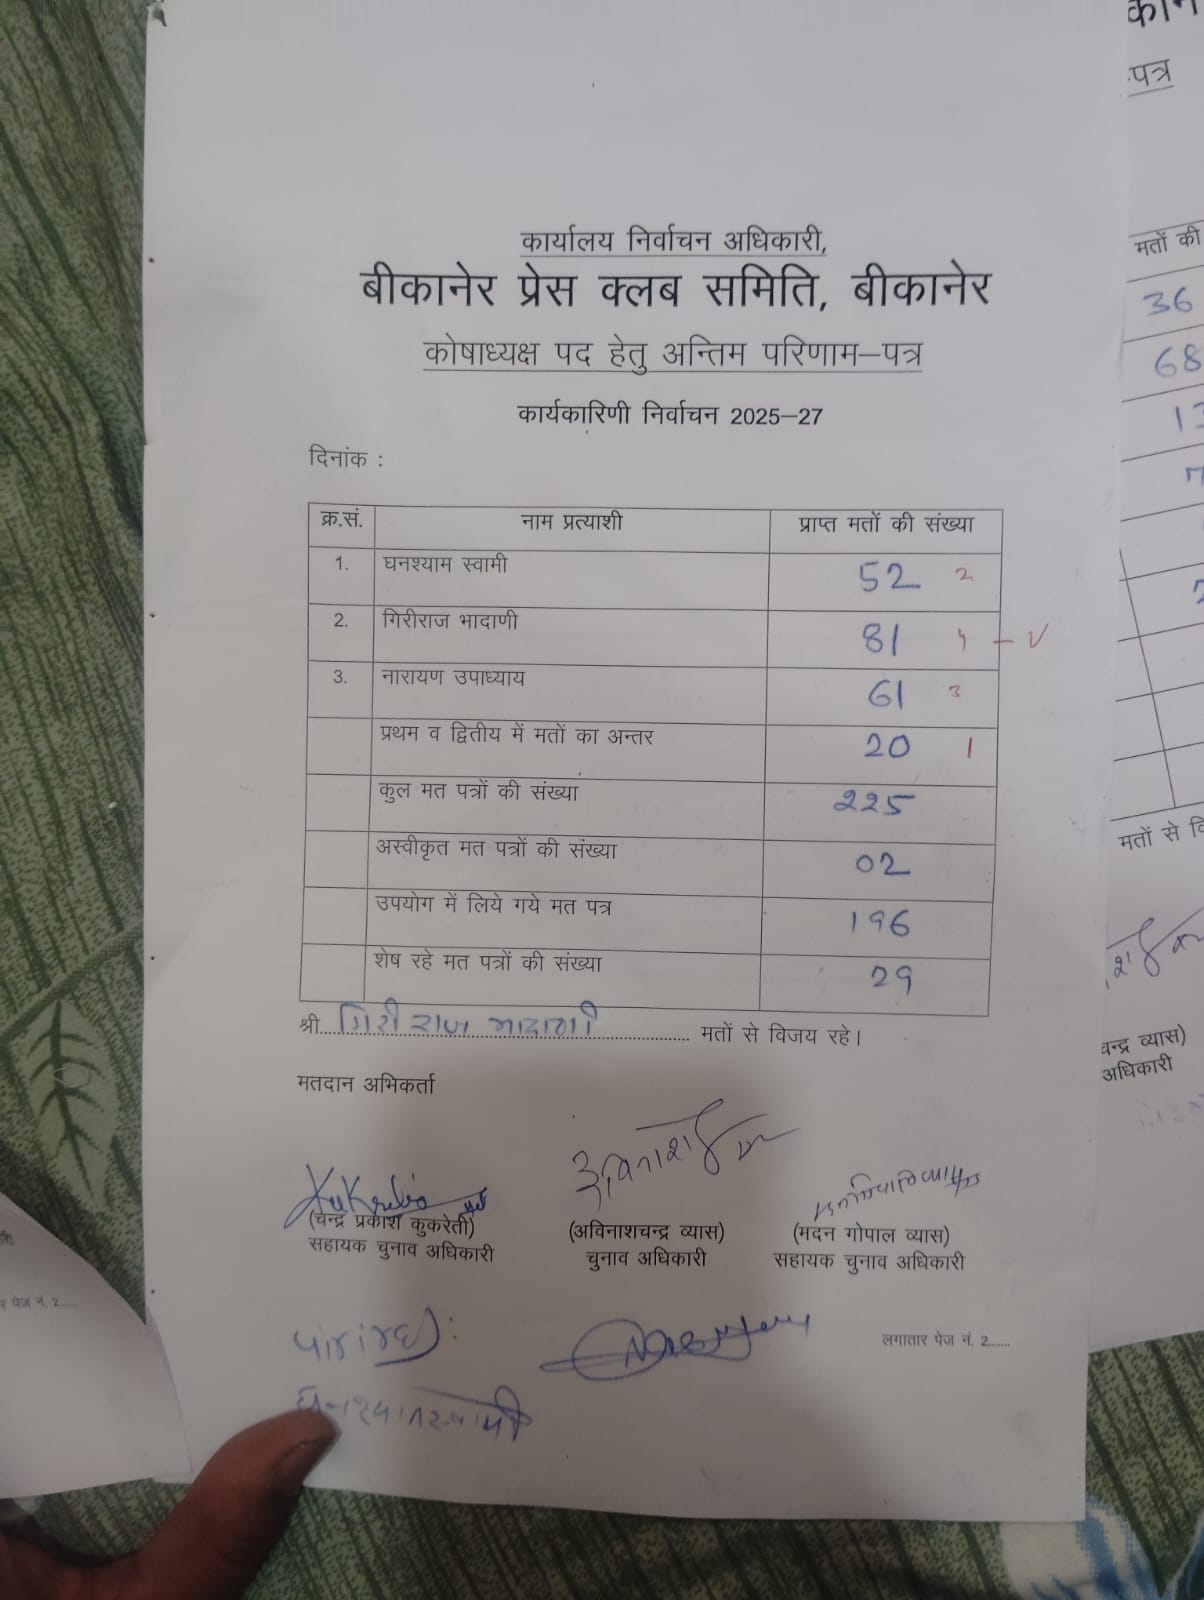 कार्यालय निर्वाचन अधिकारी,
बीकानेर प्रेस क्लब समिति, बीकानेर
कोषाध्यक्ष पद हेतु अन्तिम परिणाम–पत्र
कार्यकारिणी निर्वाचन 2025–27
दिनांक :
क्र.सं. नाम प्रत्याशी प्राप्त मतों की संख्या
1. घनश्याम स्वामी 52 2
2. गिरीराज भादाणी 81
3. नारायण उपाध्याय 61 3
प्रथम व द्वितीय में मतों का अन्तर 20 1
कुल मत पत्रों की संख्या 225
अस्वीकृत मत पत्रों की संख्या 02
उपयोग में लिये गये मत पत्र 196
शेष रहे मत पत्रों की संख्या 29
श्री....गिरीराज भादाणी.... मतों से विजय रहे।
मतदान अभिकर्ता
(चन्द्र प्रकाश कुकरेती) (अविनाशचन्द्र व्यास) (मदन गोपाल व्यास)
सहायक चुनाव अधिकारी चुनाव अधिकारी सहायक चुनाव अधिकारी
लगातार पेज नं. 2......
घनश्याम स्वामी
पत्र
मतों की
36
68
मतों से
चन्द्र व्यास)
अधिकारी
पेज नं. 2.....